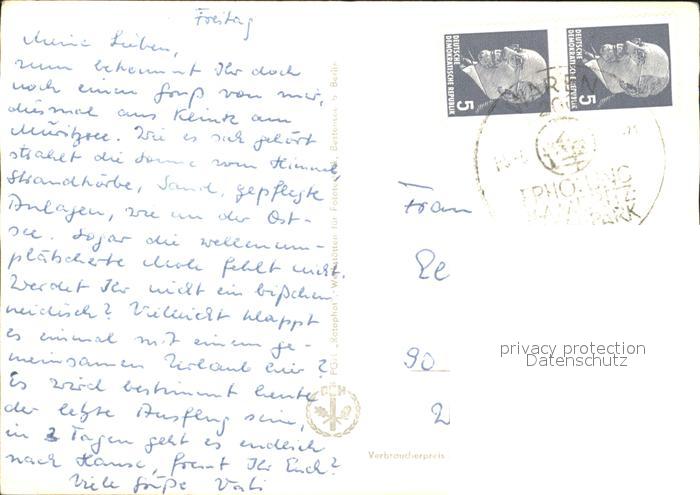 Freitag
Meine Lieben,
nun bekommt Ihr doch
noch einen Gruß von mir,
diesmal aus Klink am
Müritzsee. Wie es sich gehört
strahlt die Sonne vom Himmel,
Strandkörbe, Sand, gepflegte
Anlagen, wie an der Ost-
see. Sogar die wellenum-
plätscherte Mole fehlt nicht.
Werdet Ihr nicht ein bißchen
neidisch? Vielleicht klappt
es einmal mit einem ge-
meinsamen Urlaub hier?
Es wird bestimmt heute
der letzte Ausflug sein,
in 2 Tagen geht es endlich
nach Hause, freut Ihr Euch?
Viele Grüße Vati
DEUTSCHE
DEMOKRATISCHE REPUBLIK
5
DEUTSCHE
DEMOKRATISCHE REPUBLIK
5
WAREN
ERHOLUNG
PARK
Frau
90
privacy protection
Datenschutz
Verbraucherpreis
PGH „Katophot", Werkstätten für Fotobedarf, Bestensee b. Berlin